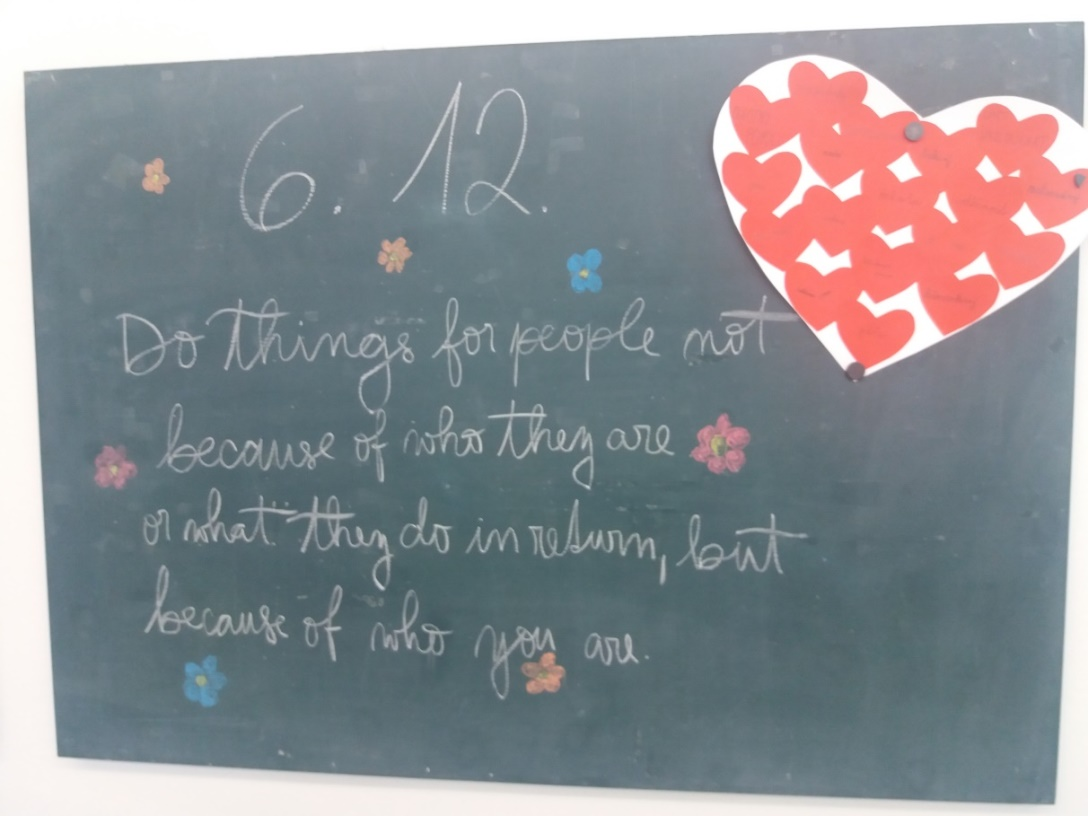 6. 12.
Do things for people not
because of who they are
or what they do in return, but
because of who you are.